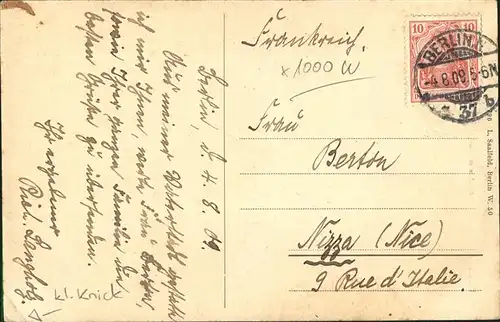 Berlin, d. 4. 8. 09
Aus meiner Vaterstadt gestatte
ich mir Ihnen, werte Frau Berton,
sowie Ihrer ganzen Familie die
besten Grüße zu übersenden.
Ihr ergebener
Rich. Langholz
kl. Knick
Frankreich.
x1000 W
Frau
Berton
Nizza (Nice)
9 Rue d'Italie.
10 10
BERLIN
-4.8.09.5-6N
* 37 b
L. Saalfeld, Berlin W. 50